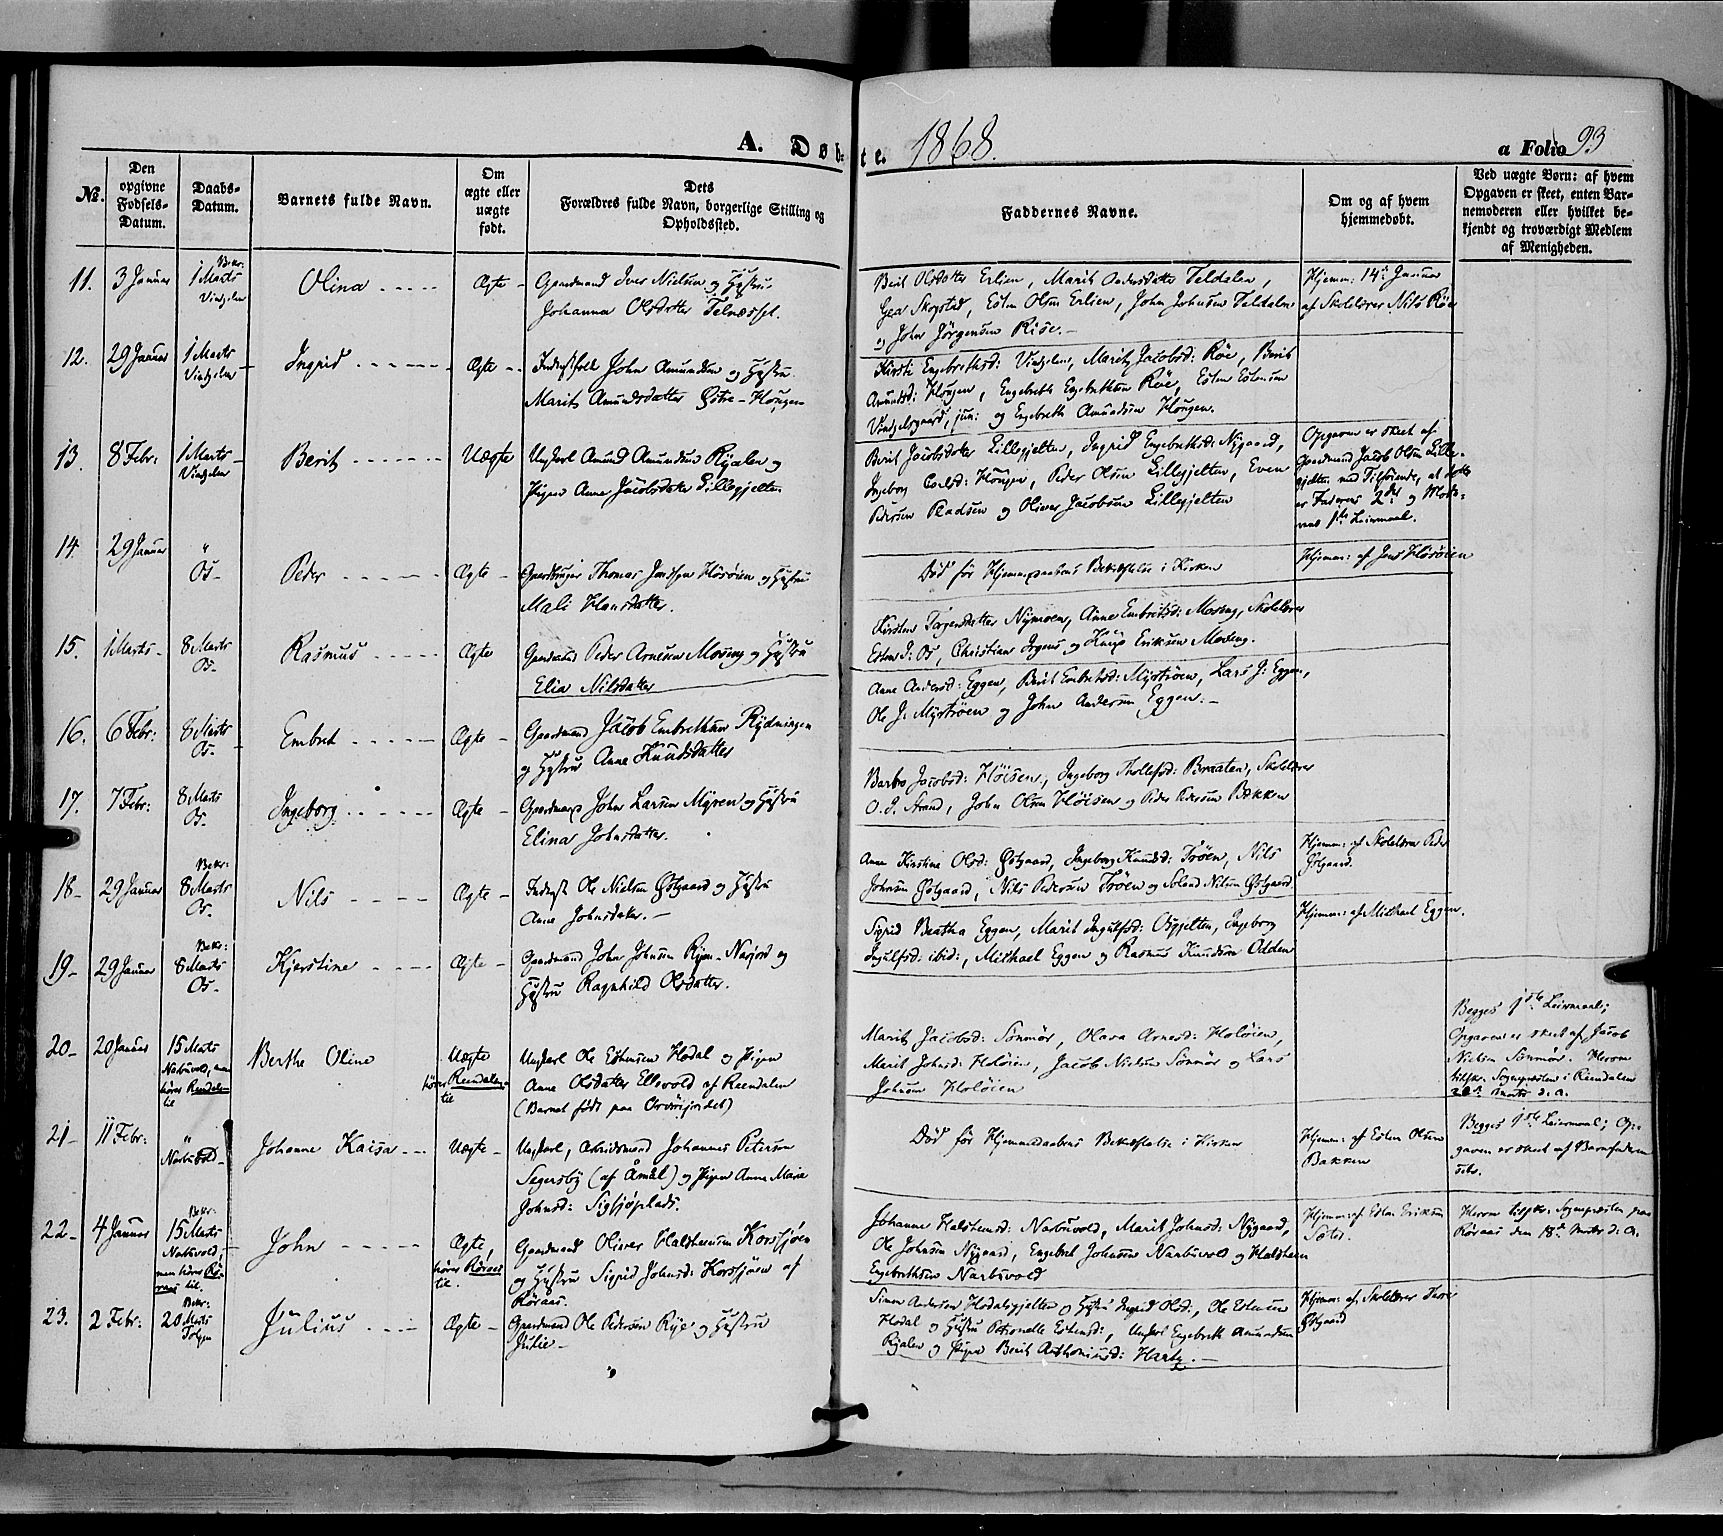 A. Døb-
te. 1868.
a Folio 93
№.
Den opgivne Fødsels-Datum.
Daabs-Datum.
Barnets fulde Navn.
Om ægte eller uægte født.
Dets Forældres fulde Navn, borgerlige Stilling og Opholdssted.
Faddernes Navne.
Om og af hvem hjemmedøbt.
Ved uægte Børn: af hvem Opgaven er skeet, enten Barnemoderen eller hvilket bekjendt og troværdigt Medlem af Menigheden.
11. 3 Januar
Bekr:
1 Marts
Vingelen
Olina
Ægte
Gaardmand Iver Nielsen og Hustru
Johanna Olsdatter Telnesset.
Berit Olsdatter Erlien, Marit Andersdatter Teldalen,
Gea Skogstad, Esten Olsen Erlien, John Johnsen Teldalen
og John Jørgensen Rise.
Hjemm: 14de Januar
af Skolelærer Nils Røe
12. 29 Januar
1 Marts
Vingelen
Ingrid
Ægte
Inderstfolk John Amundsen og Hustru
Marit Amundsdatter Østre-Hougen
Kirsti Engebrethsd: Vingelen, Marit Jacobsd: Røe, Berit
Amundsd: Hougen, Engebreth Engebrethsen Røe, Esten Estensen
Vingelsgaard, jun: og Engebreth Amundsen Hougen.
13. 8 Febr:
1 Marts
Vingelen
Berit
Uægte
Ungkarl Amund Amundsen Ryalen og
Pigen Anne Jacobsdatter Lillegjelten
Berit Jacobsdatter Lillegjelten, Ingrid Engebrethsd: Nygaard,
Ingeborg Hougen, Peder Olsen Lillegjelten, Even
Pedersen og Oliver Jacobsen Lillegjelten
Opgaven er skeet af
Gaardmand Jacob Olsen Lille-
gjelten med Tilføiende, at dette
er Faderens 2det og Mode-
rens 1ste Leiermaal.
14. 29 Januar
"
Os
Peder
Ægte
Gaardbruger Thomas Hosøien og Hustru
Mali Hansdatter.
Død før Hjemmedaabens Bekræftelse i Kirken
Hjemm: af Jens Hosøien
15. 1 Marts
8 Marts
Os
Rasmus
Ægte
Gaardmand Peder Arnesen Moseng og Hustru
Elia Nilsdatter
Kirsten Torgersdatter Nymoen, Anne Embretsd: Moseng, Skolelærer
Esten J: Os, Christian og Knup Eriksen Moseng.
16. 6 Febr:
8 Marts
Os
Embret
Ægte
Gaardmand Jacob Embrethsen Rydningen
og Hustru Anne Knudsdatter
Anne Andersd: Eggen, Berit Embretsd: Myrtrøen, Lars J: Eggen,
Ole J: Myrtrøen og John Andersen Eggen.
17. 7 Febr:
8 Marts
Os.
Ingeborg
Ægte
Gaardmand John Larsen Myren og Hustru
Elina Johnsdatter.
Barbro Jacobsd: Høisen, Ingeborg Thollefsd: Braaten, Skolelærer
O. J. Strand, John Olsen Høisen og Peder Pedersen Bakken
18. 29 Januar
Bekr:
8 Marts
Os
Nils
Ægte
Inderst Ole Nielsen Østgaard og Hustru
Anne Johnsdatter.
Anne Kirstine Olsd: Østgaard, Ingeborg Knudsd: Trøen, Nils
Johnsen Østgaard, Nils Pedersen Trøen og Nilsen Østgaard
Hjemm: af Skolelærer Peder
Østgaard.
19. 29 Januar
Bekr:
8 Marts
Os
Kjerstine
Ægte
Gaardmand John Johnsen Ryen-Narjord og
Hustru Ragnhild Olsdatter.
Sigrid Beatha Eggen, Marit Ingulfsd: Osgjelten, Ingeborg
Ingulfsd: ibid:, Michael Eggen og Rasmus Knudsen Odden
Hjemm: af Michael Eggen.
20. 20 Januar
15 Marts
Narbuvold, men
hører Reendalen
til
Berthe Oline
Uægte
hører Reendalen
til
Ungkarl Ole Estensen Hodal og Pigen
Anne Olsdatter Ellevold af Reendalen
(Barnet født paa )
Marit Jacobsd: Sømmør, Olava Arnesd: Holøien,
Marit Johnsd: Holøien, Jacob Nielsen Sømmør og Lars
Johnsen Holøien
Begges 1ste Leiermaal;
Opgaven er skeet af Jacob
Nielsen Sømmør. Herom
tilskr. Sognepræsten i Reendalen
Marts d. A.
21. 11 Febr:
"
Narbuvold
Johanne Kaisa
Uægte
Ungkarl, Arbeidsmand Johannes Peterson
Segersby (af Åmål) og Pigen Anne Marie
Johnsd: Sigsjøplads.
Død før Hjemmedaabens Bekræftelse i Kirken
Hjemm: af Esten Olsen
Bakken
Begges 1ste Leiermaal; Op-
gaven er skeet af Barnefaderen
selv.
22. 4 Januar
Bekr:
15 Marts
Narbuvold,
men hører Rø-
raas til.
John
Ægte,
hører Røraas
til.
Gaardmand Oliver Halstensen Korssjøen
og Hustru Sigrid Johnsd: Korssjøen af
Røraas.
Johanne Halstensd: Narbuvold, Marit Johnsd: Nygaard,
Ole Johnsen Nygaard, Engebret Johnsen Narbuvold og Halsten
Engebrethsen Narbuvold
Hjemm: af Esten Eriksen
Herom tilskr: Sognepræsten paa
Røraas den 18de Marts d: A.
23. 2 Febr:
Bekr:
20 Marts
Tolgen
Julius
Ægte
Gaardmand Ole Pedersen Rye og Hustru
Julie
Simen Andersen Hodalsgjelten og Hustru Ingrid Olsd:, Ole Estensen
Hodal og Hustru Petronelle Estensd:, Ungkarl Engebreth Amundsen
Ryalen og Pigen Berit Anthoniusd: Hartz.
Hjemm: af Skolelærer
Østgaard